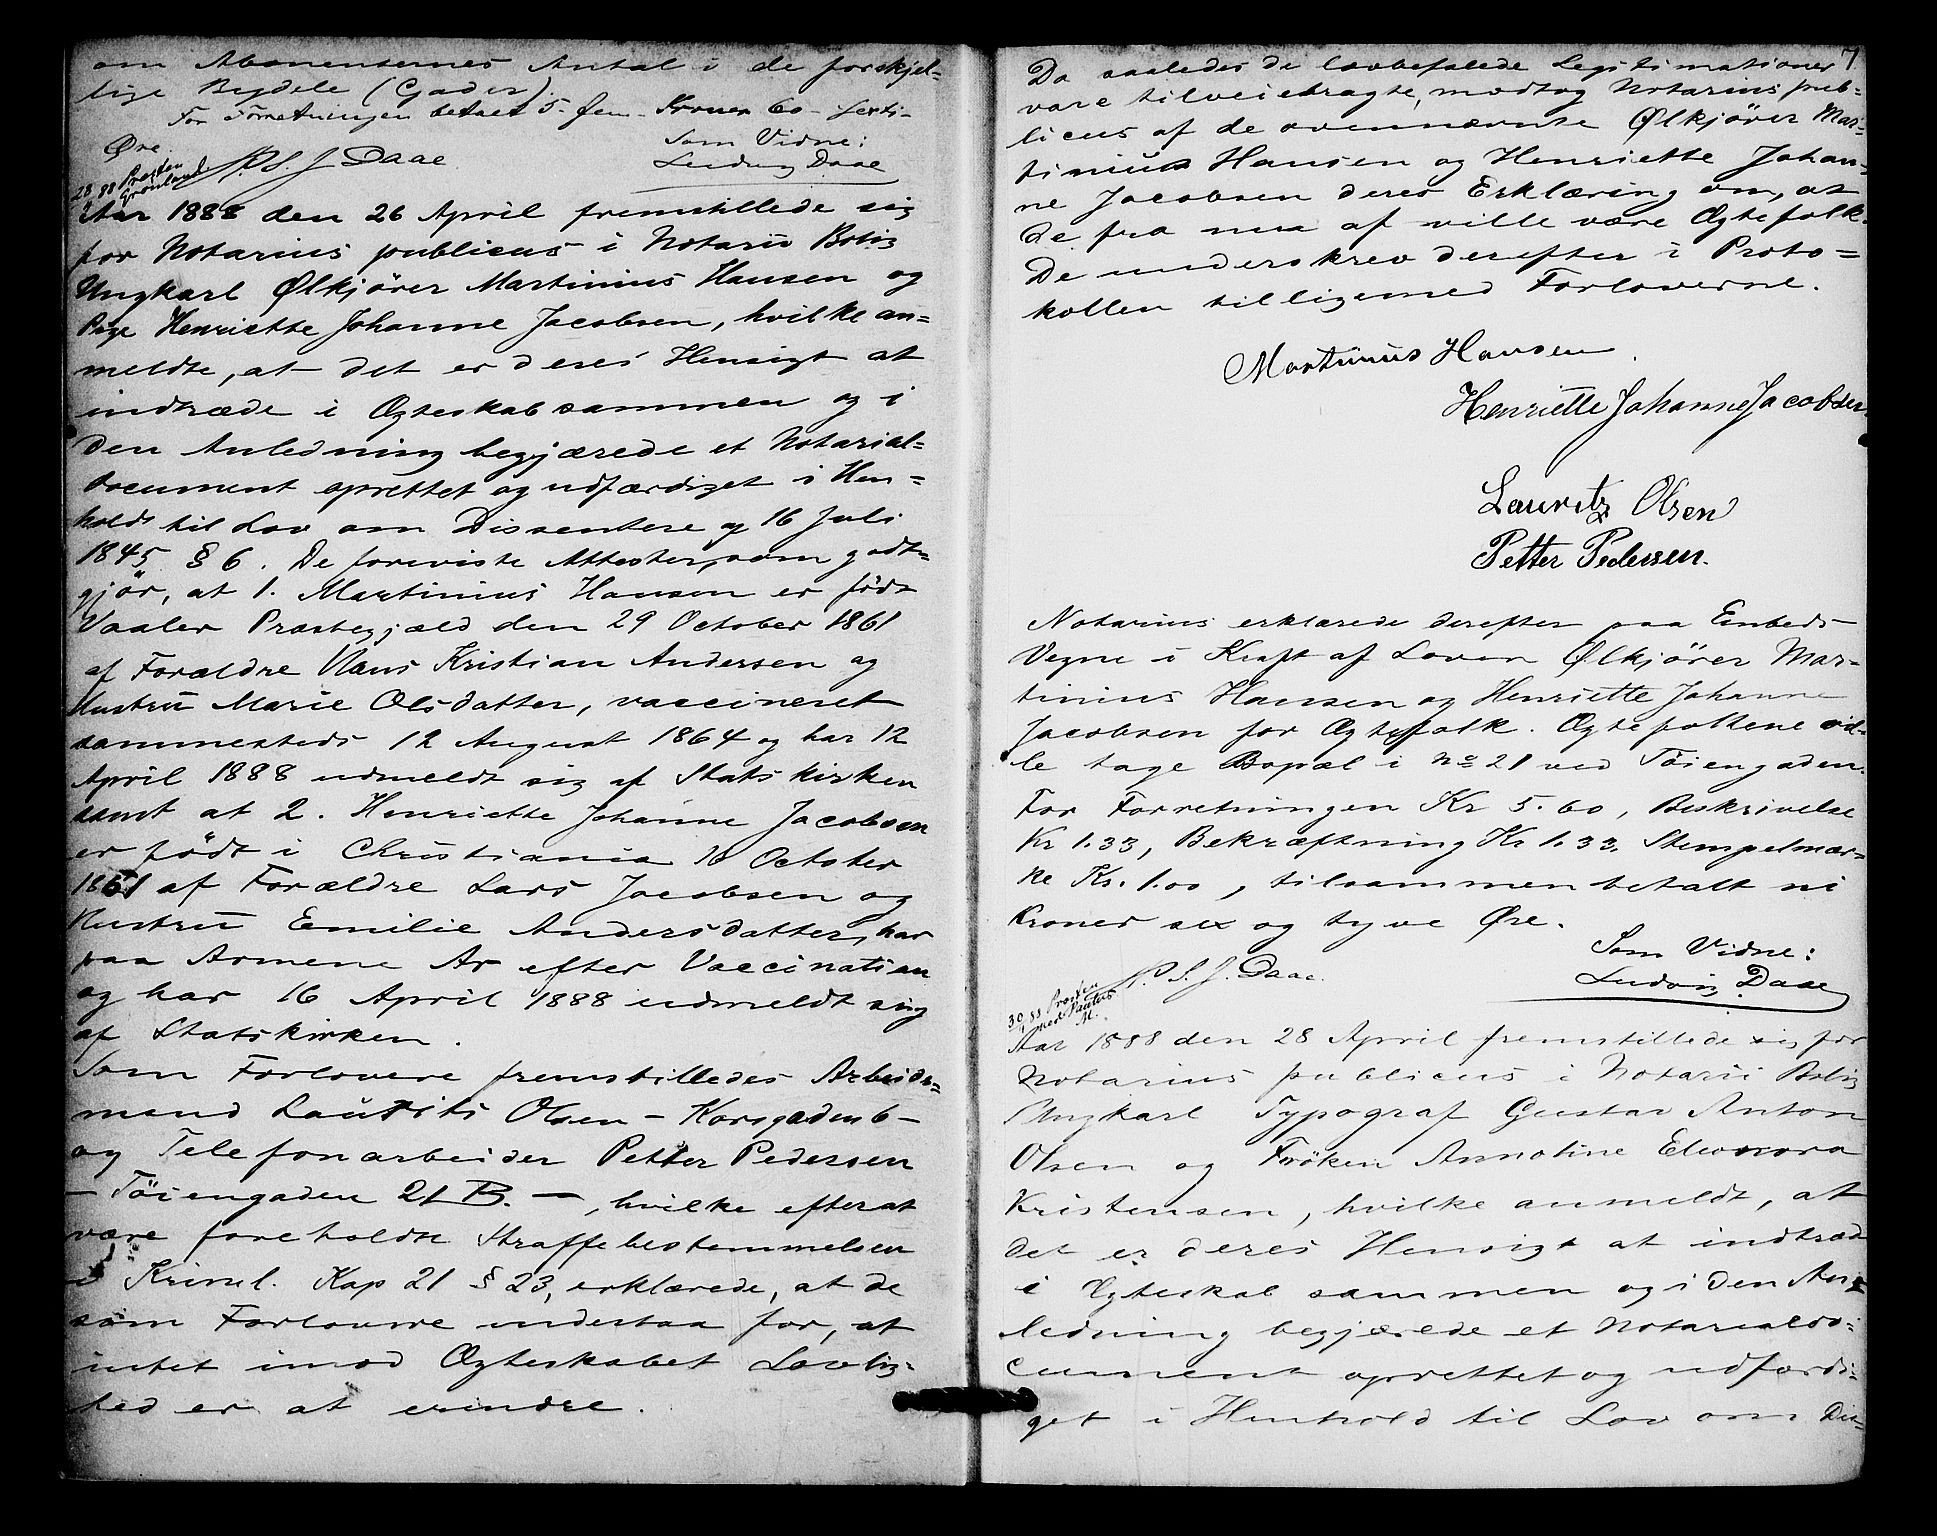 om Abonenternes Antal i de forskjel-
lige Bydele (Gader).
For Forretningen betalt 5 - fem - Kroner 60 - sexti -
Øre.
Som Vidne:
P. S. J. Daae
Ludvig Daae
28/4 88 Presten Grønland.
Aar 1888 den 26 April fremstillede sig
for Notarius publicus i Notarii Bolig
Ungkarl Ølkjører Martinius Hansen og
Pige Henriette Johanne Jacobsen, hvilke an=
meldte, at det er deres Hensigt at
indtræde i Ægteskab sammen og i
den Anledning begjærede et Notarial=
document oprettet og udfærdiget i Hen=
hold til Lov om Dissentere af 16 Juli
1845 § 6. De foreviste Attester, som godt=
gjør, at 1. Martinius Hansen er født
Vaaler Præstegjæld den 29 October 1861
af Forældre Hans Kristian Andersen og
Hustru Marie Olsdatter, vaccineret
sammesteds 12 August 1864 og har 12
April 1888 udmeldt sig af Statskirken
samt at 2. Henriette Johanne Jacobsen
er født i Christiania 16 October
1861 af Forældre Lars Jacobsen og
Hustru Emilie Andersdatter, har
paa Armene Ar efter Vaccination
og har 16 April 1888 udmeldt sig
af Statskirken.
Som Forlovere fremstilledes Arbeids=
mand Lauritz Olsen - Korsgaden 6 -
og Telefonarbeider Petter Pedersen
- Töiengaden 21 B. -, hvilke efterat
være foreholdt Straffebestemmelsen
i Kriml. Kap 21 § 23, erklærede, at de
som Forlovere indestaa for, at
intet imod Ægteskabet Lovlig=
hed er at erindre.
7
Da saaledes de lovbefalede Legitimationer
vare tilveiebragte, modtog Notarius pub=
licus af de ovennævnte Ølkjører Mar=
tinius Hansen og Henriette Johan=
ne Jacobsen deres Erklæring om, at
de fra nu af ville være Ægtefolk.
De underskrev derefter i Proto=
kollen tilligemed Forloverne.
Martinius Hansen.
Henriette Johanne Jacobsen
Lauritz Olsen
Petter Pedersen.
Notarius erklærede derefter paa Embeds-
Vegne i Kraft af Loven Ølkjører Mar=
tinius Hansen og Henriette Johanne
Jacobsen for Ægtefolk. Ægtefolkene vil=
le tage Bopæl i No 21 ved Töiengaden.
For Forretningen Kr 5.60, Beskrivelse
Kr 1.33, Bekræftning Kr 1.33, Stempelmær=
ke Kr. 1.00, tilsammen betalt ni
Kroner sex og tyve Øre.
Som Vidne:
P. S. J. Daae.
Ludvig Daae
30/4 88 Presten ved Paulus M.
Aar 1888 den 28 April fremstillede sig for
Notarius publicus i Notarii Bolig
Ungkarl Typograf Gustav Anton
Olsen og Fröken Annotine Eleonora
Kristensen, hvilke anmeldt, at
det er deres Hensigt at indtræde
i Ægteskab sammen og i den An=
ledning begjærede et Notarialdo=
cument oprettet og udfærdi=
get i Henhold til Lov om Dis=